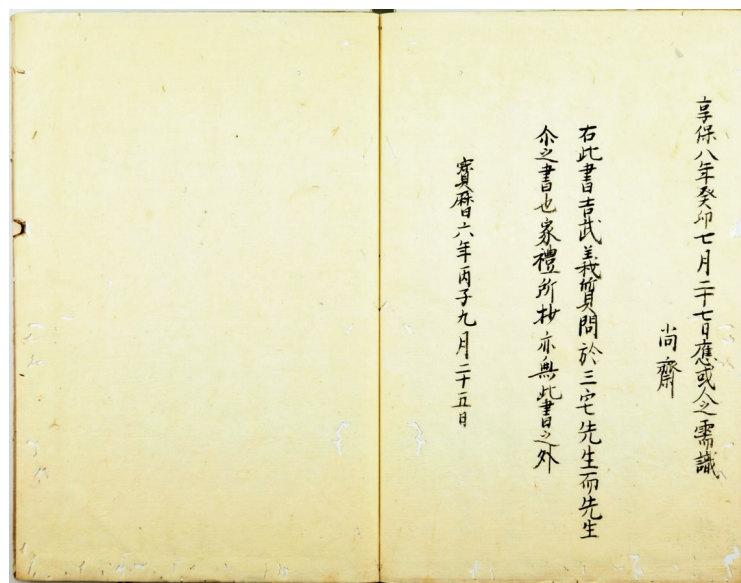 享保八年癸卯七月二十七日應或人之需識
尚齋
右此書吉武義質問於三宅先生而先生
尒之書也家禮所抄亦無此書之外
寶曆六年丙子九月二十五日